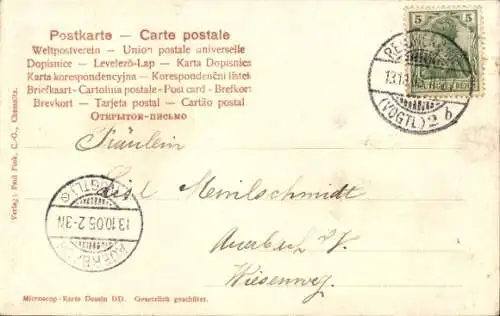 Postkarte — Carte postale
Weltpostverein — Union postale universelle
Dopisnice — Levelező-Lap — Karta Dopisnica
Karta korespondencyjna — Korespondenční lístek
Briefkaart - Cartolina postale - Post card - Brefkort
Brevkort — Tarjeta postal — Cartão postal
Открытое-письмо
5 5
(VOGTL) 2 b
Fräulein
Lisl
Auerbach i. V.
Wiesenweg.
(VOGTL)
13.10.05. 2-3N
AUERBACH
Verlag: Paul Fink, C.-G., Chemnitz.
Microscop - Karte Dessin DD. Gesetzlich geschützt.